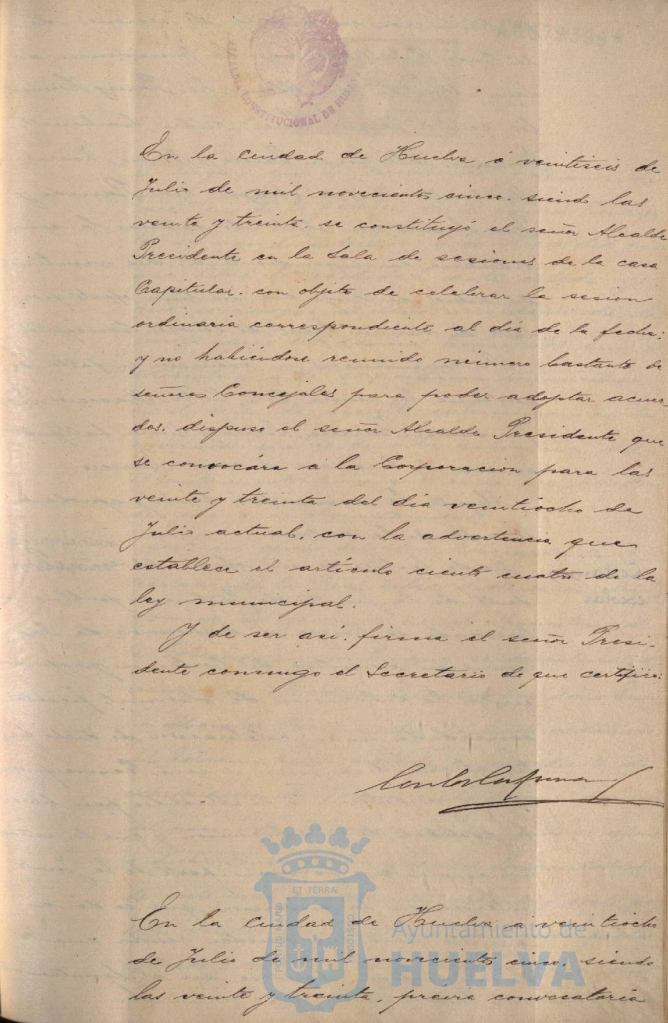 ALCALDIA CONSTITUCIONAL DE HUELVA
En la ciudad de Huelva á veintiseis de
Julio de mil novecientos cinco, siendo las
veinte y treinta, se constituyó el señor Alcalde
Presidente en la Sala de sesiones de la casa
Capitular, con objeto de celebrar la sesion
ordinaria correspondiente al dia de la fecha;
y no habiéndose reunido número bastante de
señores Concejales para poder adoptar acuer-
dos, dispuso el señor Alcalde Presidente que
se convocára á la Corporacion para las
veinte y treinta del dia veintiocho de
Julio actual, con la advertencia que
establece el artículo ciento cuatro de la
ley municipal.
Y de ser asi, firma el señor Presi-
dente conmigo el Secretario de que certifico:
En la ciudad de Huelva a veintiocho
de Julio de mil novecientos cinco, siendo
las veinte y treinta, previa convocatoria
ET TERRA
Ayuntamiento de
HUELVA